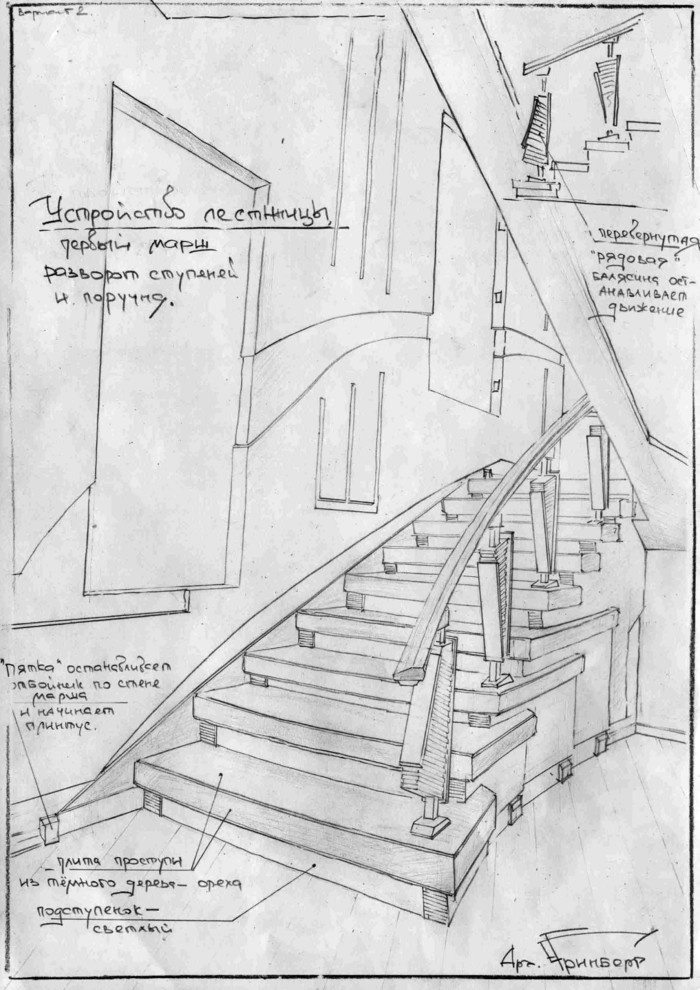 Вариант 2
Устройство лестницы
первый марш
разворот ступеней
и поручня.
перевернутая
"рядовая"
балясина ост-
анавливает
движение
"Пятка" останавливает
отбойник по стене
марша
и начинает
плинтус.
плита проступи
из тёмного дерева - ореха
подступенок -
светлый
Арх. Гринберг